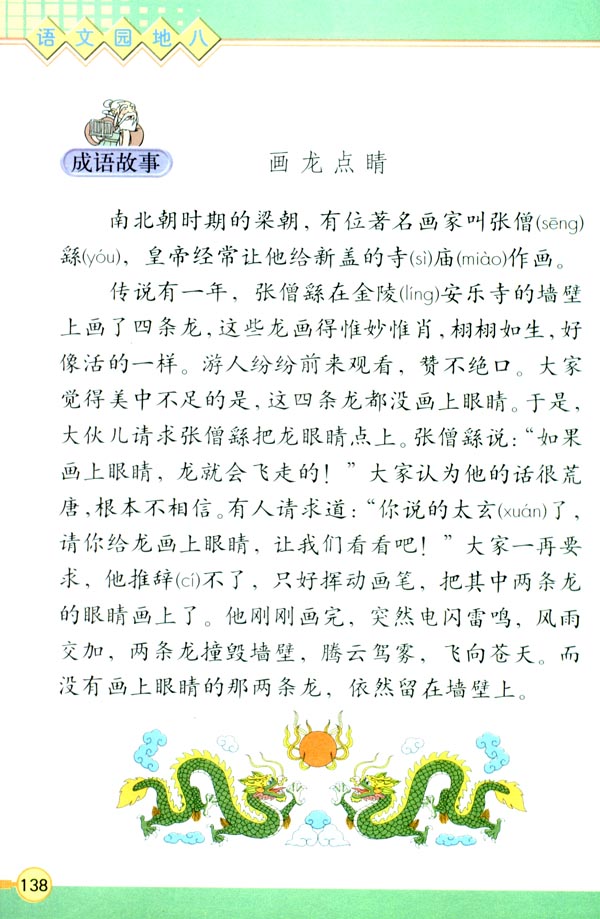 语文园地八
成语故事
画龙点睛
南北朝时期的梁朝，有位著名画家叫张僧(sēng)
繇(yóu)，皇帝经常让他给新盖的寺(sì)庙(miào)作画。
传说有一年，张僧繇在金陵(líng)安乐寺的墙壁
上画了四条龙，这些龙画得惟妙惟肖，栩栩如生，好
像活的一样。游人纷纷前来观看，赞不绝口。大家
觉得美中不足的是，这四条龙都没画上眼睛。于是，
大伙儿请求张僧繇把龙眼睛点上。张僧繇说：“如果
画上眼睛，龙就会飞走的！”大家认为他的话很荒
唐，根本不相信。有人请求道：“你说的太玄(xuán)了，
请你给龙画上眼睛，让我们看看吧！”大家一再要
求，他推辞(cí)不了，只好挥动画笔，把其中两条龙
的眼睛画上了。他刚刚画完，突然电闪雷鸣，风雨
交加，两条龙撞毁墙壁，腾云驾雾，飞向苍天。而
没有画上眼睛的那两条龙，依然留在墙壁上。
138